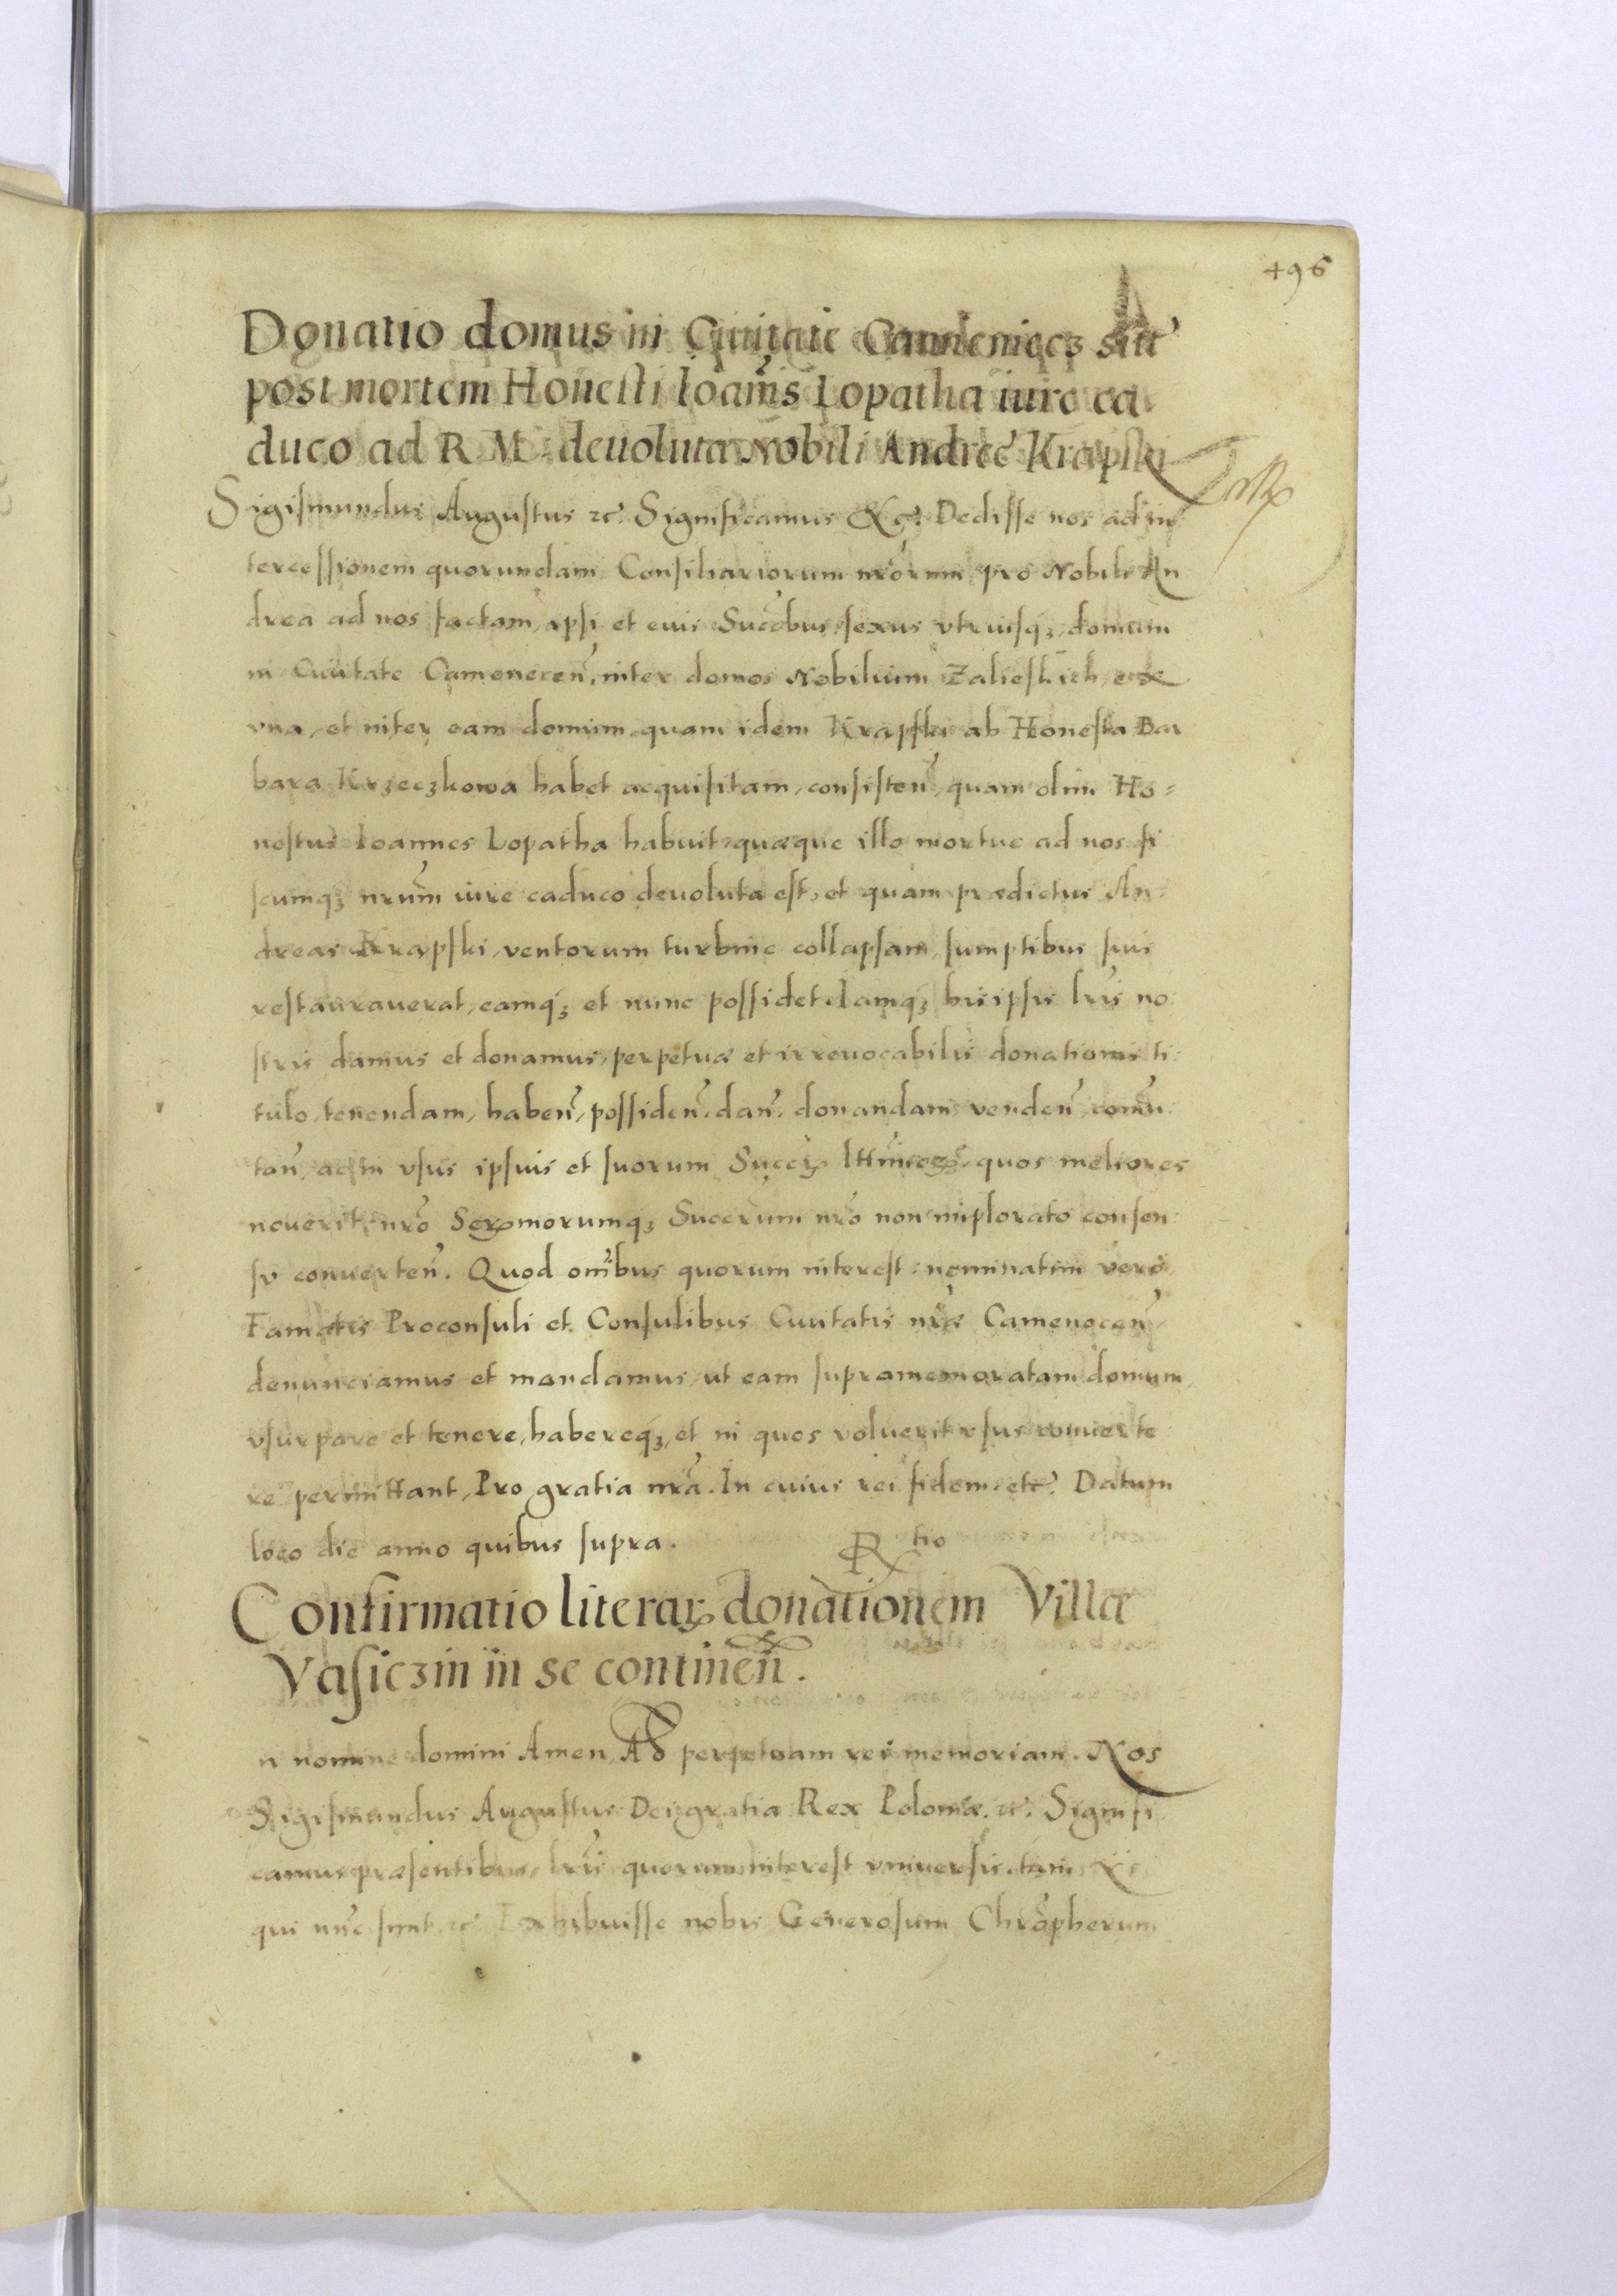 496
Donatio domus in Ciuitate Camieniecz sitæ
post mortem Honesti Ioan̄is Lopatha iure ca
duco ad R. M. deuoluta Nobili Andreæ Krapski
Sigismundus Augustus etc. Significamus &c. Dedisse nos ad in
tercessionem quorundam Consiliariorum nr̄orum pro Nobili An
drea ad nos factam, ipsi et eius Succ̄bus sexus vtriusq₃ domum
in Ciuitate Camenecen̄, inter domos Nobilium Zalieskich, ex
vna, et inter eam domum quam idem Krapski ab Honesta Bar
bara Krzeczkowa habet acquisitam, consisten̄, quam olim Ho=
nestus Ioannes Lopatha habuit, quæque illo mortuo ad nos fi
scumq₃ nr̄um iure caduco deuoluta est, et quam prædictus An
dreas Krapski, ventorum turbine collapsam, sumptibus suis
restaurauerat, eamq₃ et nunc possidet. Iamq₃ his ipsis lr̄is no
stris damus et donamus, perpetuæ et irreuocabilis donationis ti
tulo, tenendam, haben̄, possiden̄, dan̄, donandam venden̄, comu
tan̄, ac in vsus ipsius et suorum Succ̄ quos meliores
nouerit, nr̄o morumq₃ Succ̄rum nr̄o non implorato consen
su conuerten̄. Quod om̄ibus quorum interest: nominatim vero
Famatis Proconsuli et Consulibus Ciuitatis nr̄æ Camenecen̄,
denunciamus et mandamus, ut eam supramemoratam domum,
vsurpare et tenere, habereq₃, et in quos voluerit vsus conuerte
re permittant, Pro gratia nr̄a. In cuius rei fidem etc. Datum
loco die anno quibus supra. R tio
Confirmatio literar. donationem Villæ
Vasiczin in se continen̄.
n nomine domini Amen, Ad perpetuam rei memoriam. Nos
Sigismundus Augustus Dei gratia Rex Poloniæ. etc. Signifi
camus præsentibus, lr̄is quorum interest vniuersis. tam
qui nūc sunt, etc. Exhibuisse nobis Generosum Chr̄opherum